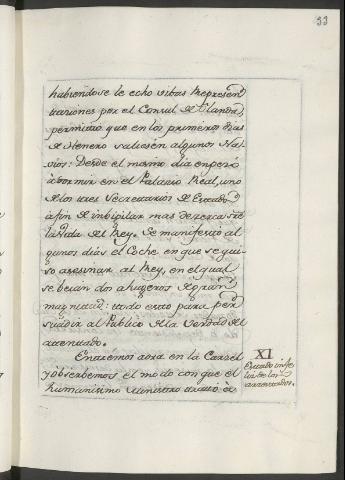 33
habiendose le echo vibas Represen
taciones por el Consul de Olanda,
permitio que en los primeros dias
de Henero saliesen algunos Na-
vios: Desde el mismo dia empezò
à dormir en el Palacio Real, uno
de los tres Secretarios de Estado
à fin de inbigilar mas de cerca sobre
la Vida del Rey. Se manifestò al
gunos dias el Coche en que se qui
so asesinar al Rey, en el qual
se beian dos ahugeros de gran
magnitud: todo esto para per
suadir al Publico de la Verdad del
attentado.
Entremos aora en la Carzel
y obserbemos el modo con que el
humanisimo Ministro tratò à
XI
Estado infe
liz de los
arrestados.